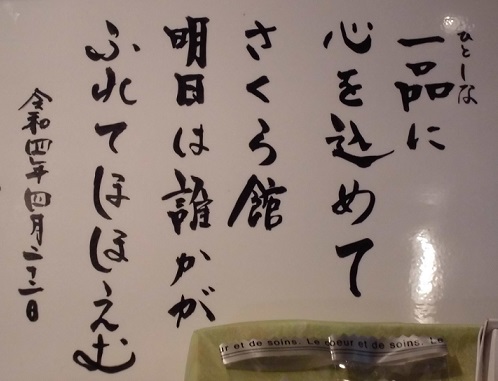 ひとしな
一品に
心を込めて
さくら館
明日は誰かが
ふれてほほえむ
令和四年四月二十二日
ur et de soins. Le coeur et de soins. Le